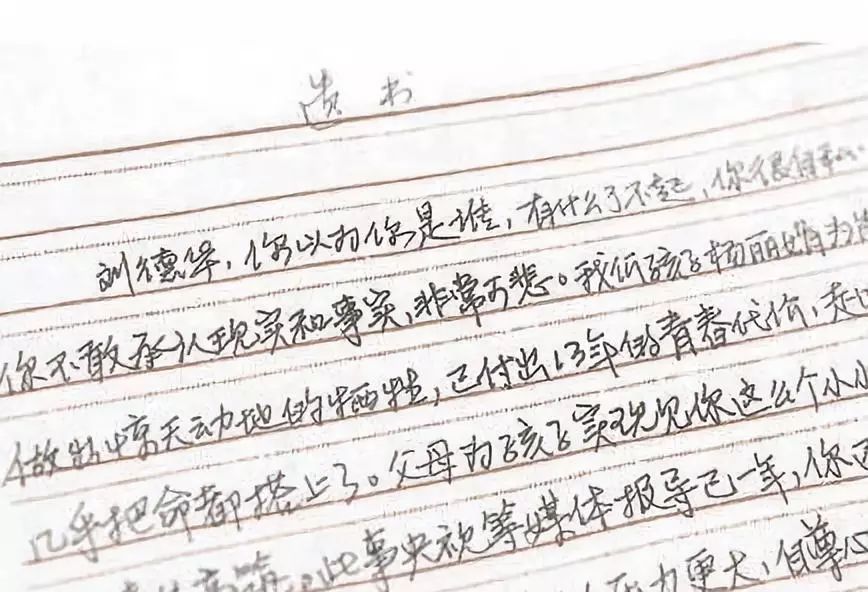 遗书
刘德华,你以为你是谁,有什么了不起,你很自私
你不敢承认现实和事实,非常可悲。我低孩子杨丽娟为
做出惊天动地的牺牲,已付出13年的青春代价,走
几乎把命都搭上了。父母为孩子实现见你这么个小小
此事央视等媒体报导已一年,你
力更大,自尊心